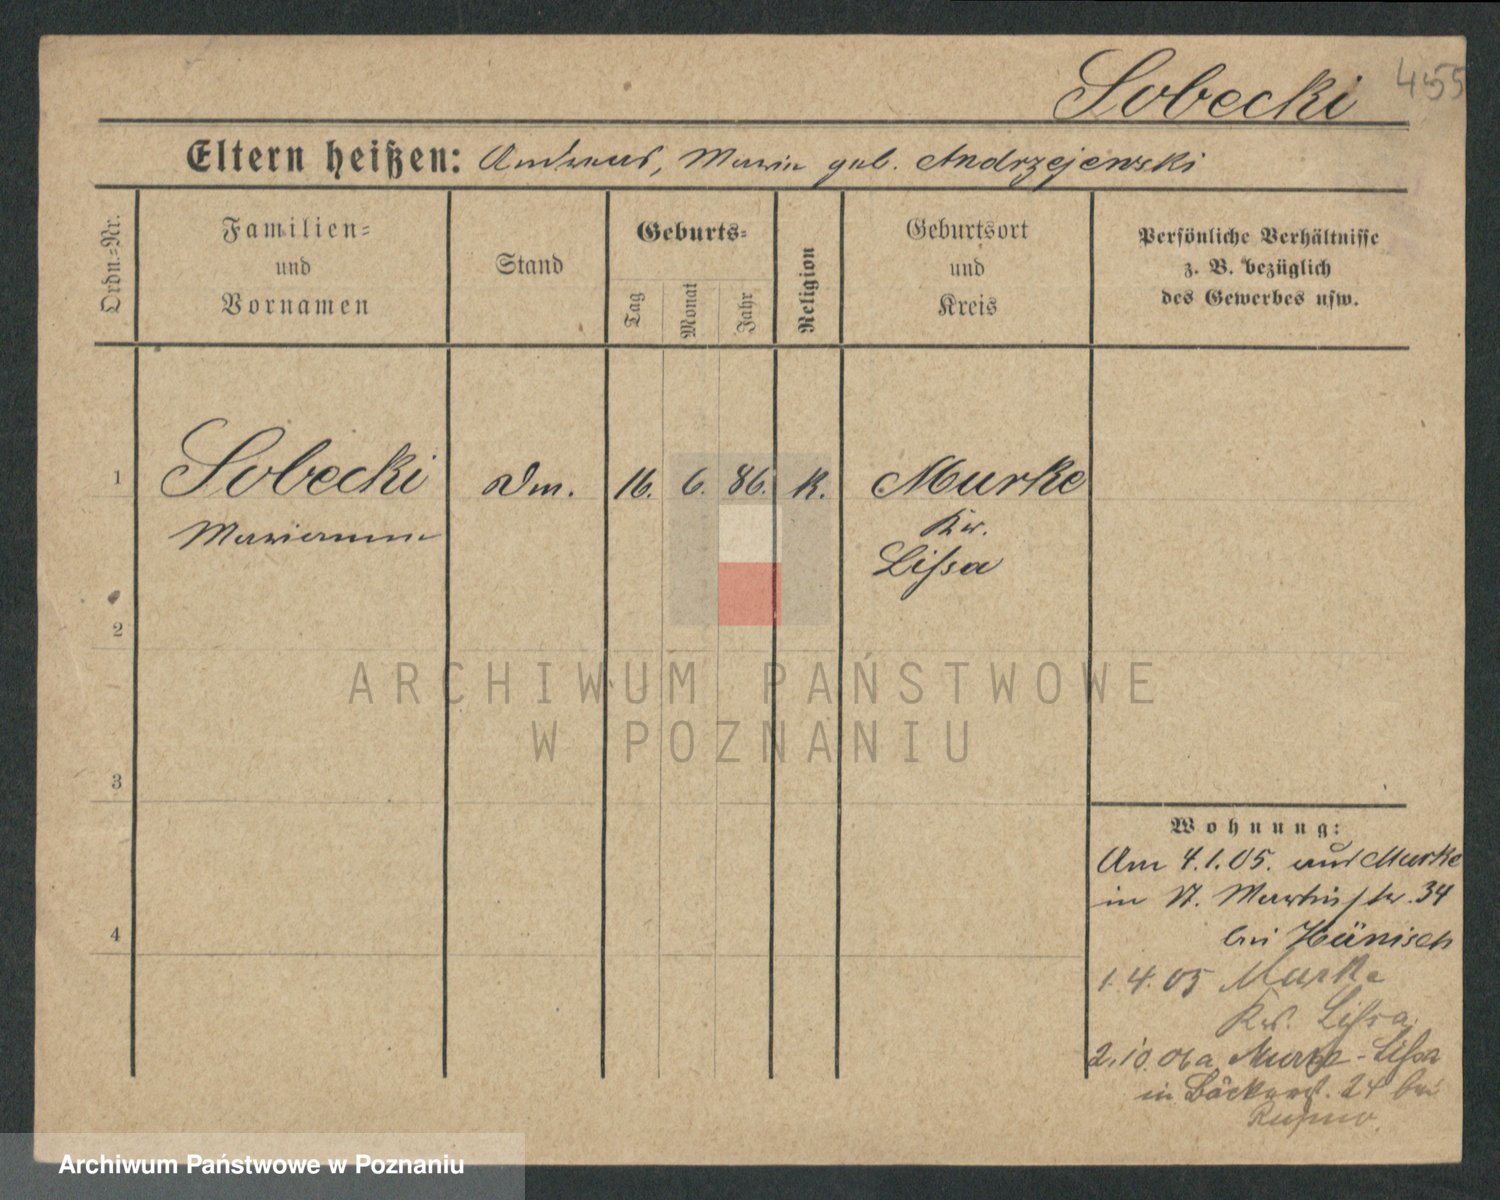 Sobecki 455
Eltern heißen: Andreas, Maria geb. Andrzejewski
Ordn.-Nr.
Familien-
und
Vornamen
Stand
Geburts-
Tag
Monat
Jahr
Religion
Geburtsort
und
Kreis
Persönliche Verhältnisse
z. B. bezüglich
des Gewerbes usw.
1 Sobecki Dm. 16. 6. 86. K. Murke
Marianna Kr.
Lissa
2
ARCHIWUM PAŃSTWOWE
W POZNANIU
3
Wohnung:
Am 4.1.05. aus Murke
in St. Martinstr. 34
4
bei Hänisch
1.4.05 Murke
Kr. Lissa
2.10.06 a. Murke-Lissa
in Bäckerst. 24 bei
Archiwum Państwowe w Poznaniu